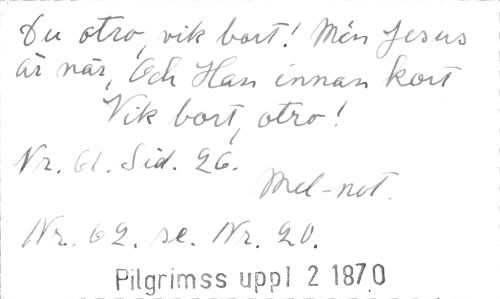 Du otro, vik bort! Min Jesus
är när, Och Han innan kort
Vik bort, otro!
Nr. 61. Sid. 26.
Mel-not.
Nr. 62. se. Nr. 20.
Pilgrimss uppl 2 1870